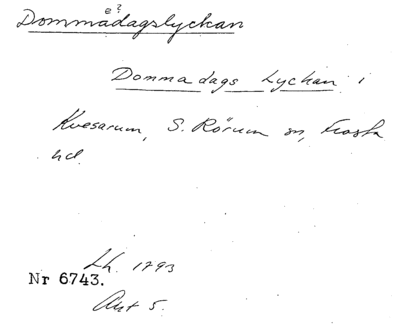 e?
Dommadagslyckan
Domma dags Lyckan i
Kvesarum, S. Rörum sn, Frosta
hd.
Lh. 1793
Nr 6743.
Akt 5.